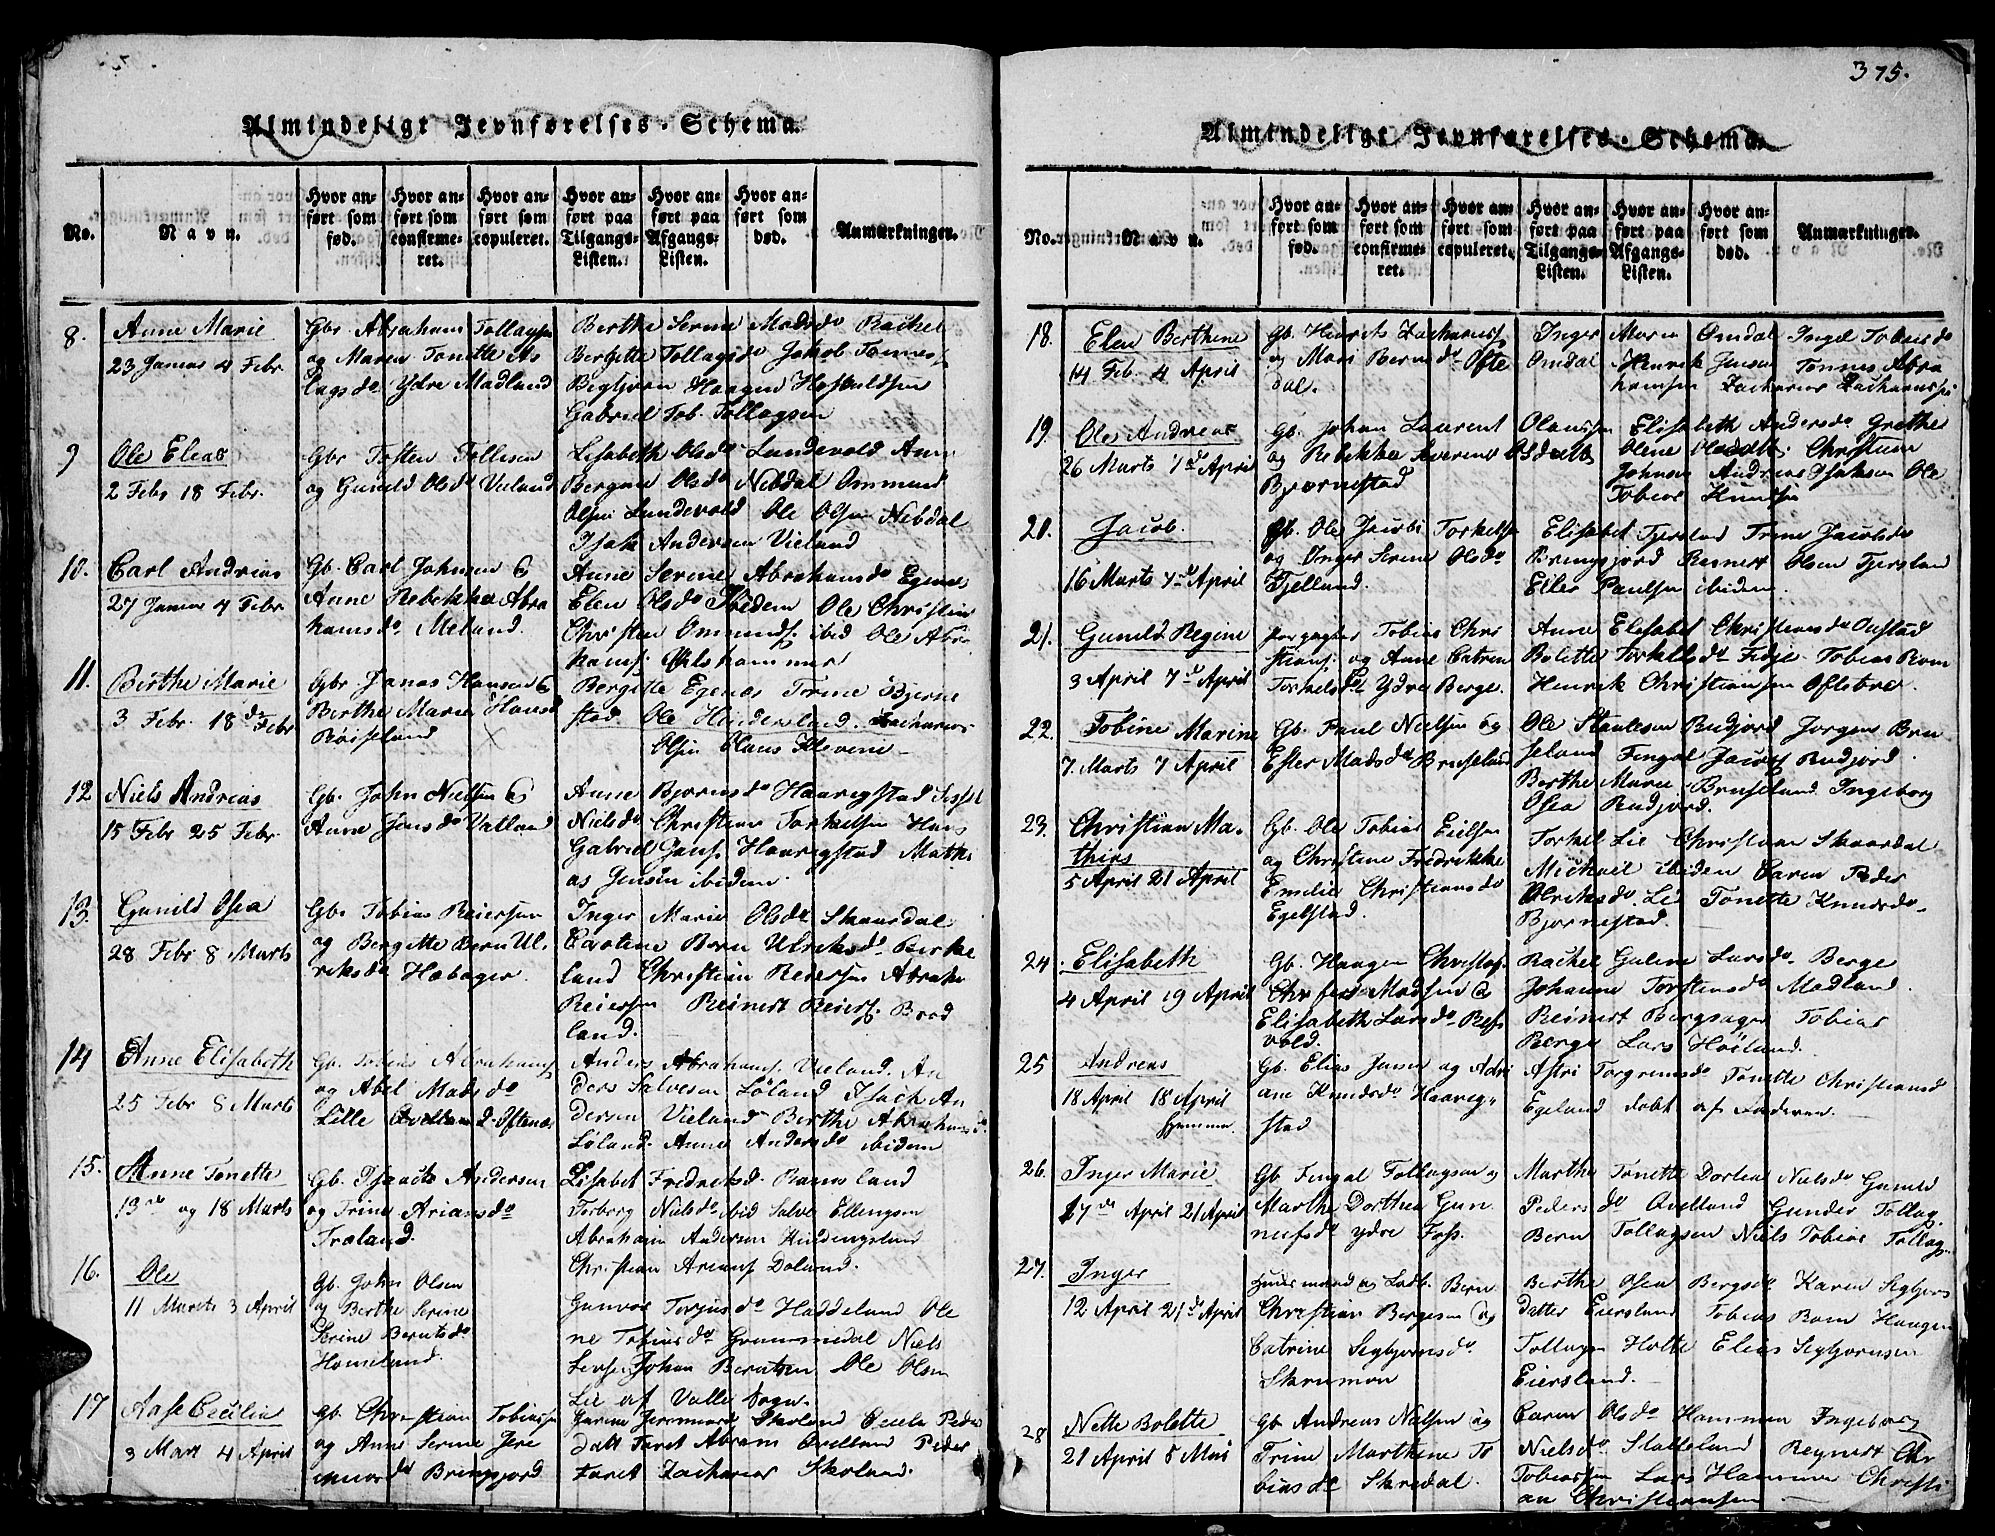 Almindeligt Jevnførelses-Schema.
No.
Navn.
Hvor anført som fød.
Hvor anført som confirmeret.
Hvor anført som copuleret.
Hvor anført paa Tilgangs-Listen.
Hvor anført paa Afgangs-Listen.
Hvor anført som død.
Anmærkninger.
8. Anne Marie
23 Januar 4 Febr
Gbr. Abraham Tollagsen
og Maren Tonette As
lagsda Ydre Madland
Berthe Serine Madsda Rachel
Bergitte Tollagsda Jakob Tønnes
Haagen
Gabriel Tob. Tollagsen
9 Ole Elias
2 Febr 18 Febr.
Gbr Tosten Tollesen
og Gunild Olsda Vieland
Lisabeth Olsda Lundevold Ann
Bergine Olsda Nebdal Ommund
Olsen Lundevold Ole Olsen Nebdal
Isak Andersen Vieland
10. Carl Andreas
27 Januar 4 Febr
Gb. Carl Johnsen &
Anne Rebekka Abra
hamsda Meland.
Anne Serine Abrahamsda Egenes
Elen Olsda Ibidem Ole Christian
Christen Ommunds. ibid Ole Abra
hams.
11. Berthe Marie
3 Febr. 18 d Febr
Gbr. Jonas Hansen &
Berthe Marie Hansd
Røisland
Bergitte Egenæs Trine Bjørne
stad. Ole Zacharias
Olsen Olaus
12 Niels Andreas
15 Febr 25 Febr
Gb. John Nielsen &
Anne Jensda Vatland
Anne Bjørnsda Haarigstad
Nielsda Christian Torkelsen Hans
Gabriel Jens. Haarigstad Mathi
as Jensen ibidem.
13. Gunild Osea
28 Febr 8 Marts
Gb. Tobias Reiersen
og Bergitte Bern Ul
riksda Hæbager.
Inger Marie Olsda Skaardal
Caroline Bern Ulriksda Birke
land Christian Reiersen Abrah
Reiersen Reinert Reiers. Brod
land.
14 Anne Elisabeth
25 Febr 8 Marts
Gb. Tobias Abrahams
og Abel Madsda
Lille Avelland Oftenæs
Anders Abrahams. Vieland. An
ders Salvesen Løland Isach An
dersen Vieland Berthe Abrahamsda
Løland. Anne Andersda ibidem
15. Anne Tonette
13de og 18 Marts
Gb. Isaach Andersen
og Trine Ariansda
Træland.
Lisabet Fredriksd. Ramsland
Torborg Nielsda ibid Salve Ellengsen
Abraham Andersen
Christian Arians Døland.
16. Ole
11 Marts 3 April
Gb. John Olsen
og Berthe Serine
Serine Berntsda
Homeland.
Gunvor Torjusda Haddeland Ole
ne Tobiasda Grummedal Niels
Johan Berntsen Ole Olsen
Lie af Valle Sogn.
17 Aase Cecilia
3 Mart 4 April
Gb. Christian Tobiassen
og Anne Serine Jere
miasda Bringsjord
Skoland Cecilia Peder
datt Faret Abram Avelland Peder
Faret Zacharias Skoland.
375.
Almindeligt Jevnførelses-Schema.
No.
Navn.
Hvor anført som fød.
Hvor anført som confirmeret.
Hvor anført som copuleret.
Hvor anført paa Tilgangs-Listen.
Hvor anført paa Afgangs-Listen.
Hvor anført som død.
Anmærkninger.
18. Elen Berthine
14 Feb. 4 April
Gb. Henrik Zachariass
og Mari Berntsda Ofte
dal.
Inger Maria Omdal Ingel Tobiasda
Omdal Henrik Jensen Tønnes Abra
hamsen Zacharias Zachariass
19. Ole Andreas
26 Marts 7d April
Gb. Johan Laurent Olaussen
og Rebekka Severine Olsdatt
Bjørnestad
Elisabeth Andersda Grethe
Olene Olsdatt. Christian
Johnsen Andreas Isaksen Ole
Tobias Knudsen
20. Jacob.
16 Marts 7d April
Gb. Ole Jacobs Torkelsen
og Inger Serene Olsda
Fjelland.
Elisabet Fjersland Trine Jacobsda
Bringsjord Reinert Olsen Fjersland
Eiler Paulsen ibidem.
21. Gunild Regine
3 April 7d April
Forpagter Tobias Chri
stians. og Anne Catrin
Torkelsda Ydre Berge.
Anne Elisabet Christensda Onstad
Bolette Torkelsda Fidje Tobias Rom
Henrik Christiansen Oftebro.
22. Tobine Marine
7. Marts 7 April
Gb. Paul Nielsen og
Ester Madsda Bruseland
Ole Staalesen Rudjord Jørgen Bru
seland Fingal Jacobs Rudjord.
Berthe Marie Bruseland Ingeborg
Osea Rudjord.
23. Christian Ma-
thias
5 April 21 April
Gb. Ole Tobias Eielsen
og Christine Fredrikke
Emilie Christiansda
Egelstad.
Torkel Lie Christian Skaardal
Michael ibidem Caren Peder
Ulriksda Lie Tonette Knudsda
Bjørnestad.
24. Elisabeth
4 April 19 April
Gb. Haagen Christof.
Christ Madsen &
Elisabeth Larsda Refs
vold.
Rachel Galene Larsda Berge
Johanne Torstensda Madland.
Reinert Bergsager Tobias
Berge Lars Høiland.
25 Andreas
18 April 18 April
hjemme.
Gb. Elias Jansen og Adri
ane Knudsda Haarig-
stad
Astri Torgrimsda Tonette Christiansd
Egeland døbt af Faderen.
26. Inger Marie
17de April 21 April
Gb Fingal Tollagsen og
Marthe Dorthea Gun
nufsda ydre Foss.
Marthe Tonette Dorthea Nielsda Gunild
Pedersda Avelland Gunder Tollag.
Bern Tollagsen Niels Tobias Tollags
27. Inger
12 April 21de April
Huusmand og Lodb. Bern
Christian Bergesen og
Catrine Segbjørnsda
Skrumoen
Berthe Osea Bergsda Karen Segbjørns
datter Eiersland Tobias Rom Haagen
Tollagsen Holte Elias Segbjørnsen
Eiersland.
28 Nette Bolette
21 April 8 Mai
Gb Andreas Nielsen og
Trine Marthene To
biasda Skredal.
Caren Olsda Hammen Ingeborg
Nielsda Statteland Reinert Chr
Tobiassen Lars Hammer Christi
an Christiansen